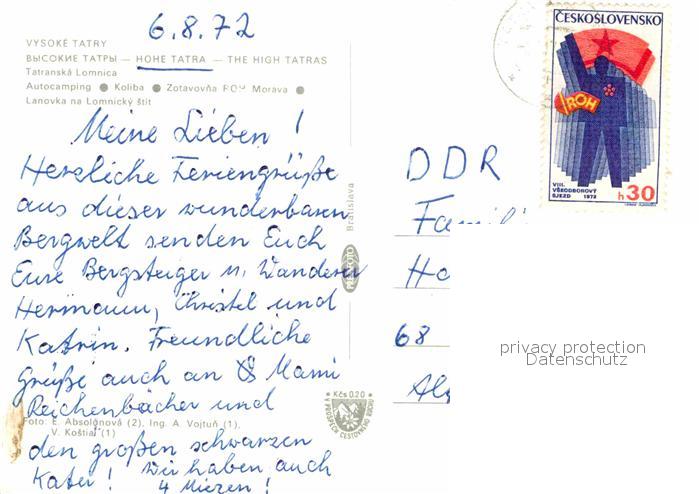 6.8.72
VYSOKÉ TATRY
ВЫСОКИЕ ТАТРЫ — HOHE TATRA — THE HIGH TATRAS
Tatranská Lomnica
Autocamping ● Koliba ● Zotavovňa ROH Morava ●
Lanovka na Lomnický štít
Meine Lieben!
Herzliche Feriengrüße
aus dieser wunderbaren
Bergwelt senden Euch
Eure Bergsteiger u. Wanderer
Hermann, Christel und
Katrin. Freundliche
Grüße auch an Mami
Reichenbächer und
Foto: E. Absolonová (2), Ing. A. Vojtuň (1),
V. Koštial (1)
den großen schwarzen
Kater! Wir haben auch
4 Miezen!
Bratislava
Kčs 0.20
V PROSPECH CESTOVNÉHO RUCHU
ČESKOSLOVENSKO
ROH
VIII.
VŠEODBOROVÝ
SJEZD 1972
h30
DDR
Famili
Ho
68
privacy protection
Datenschutz